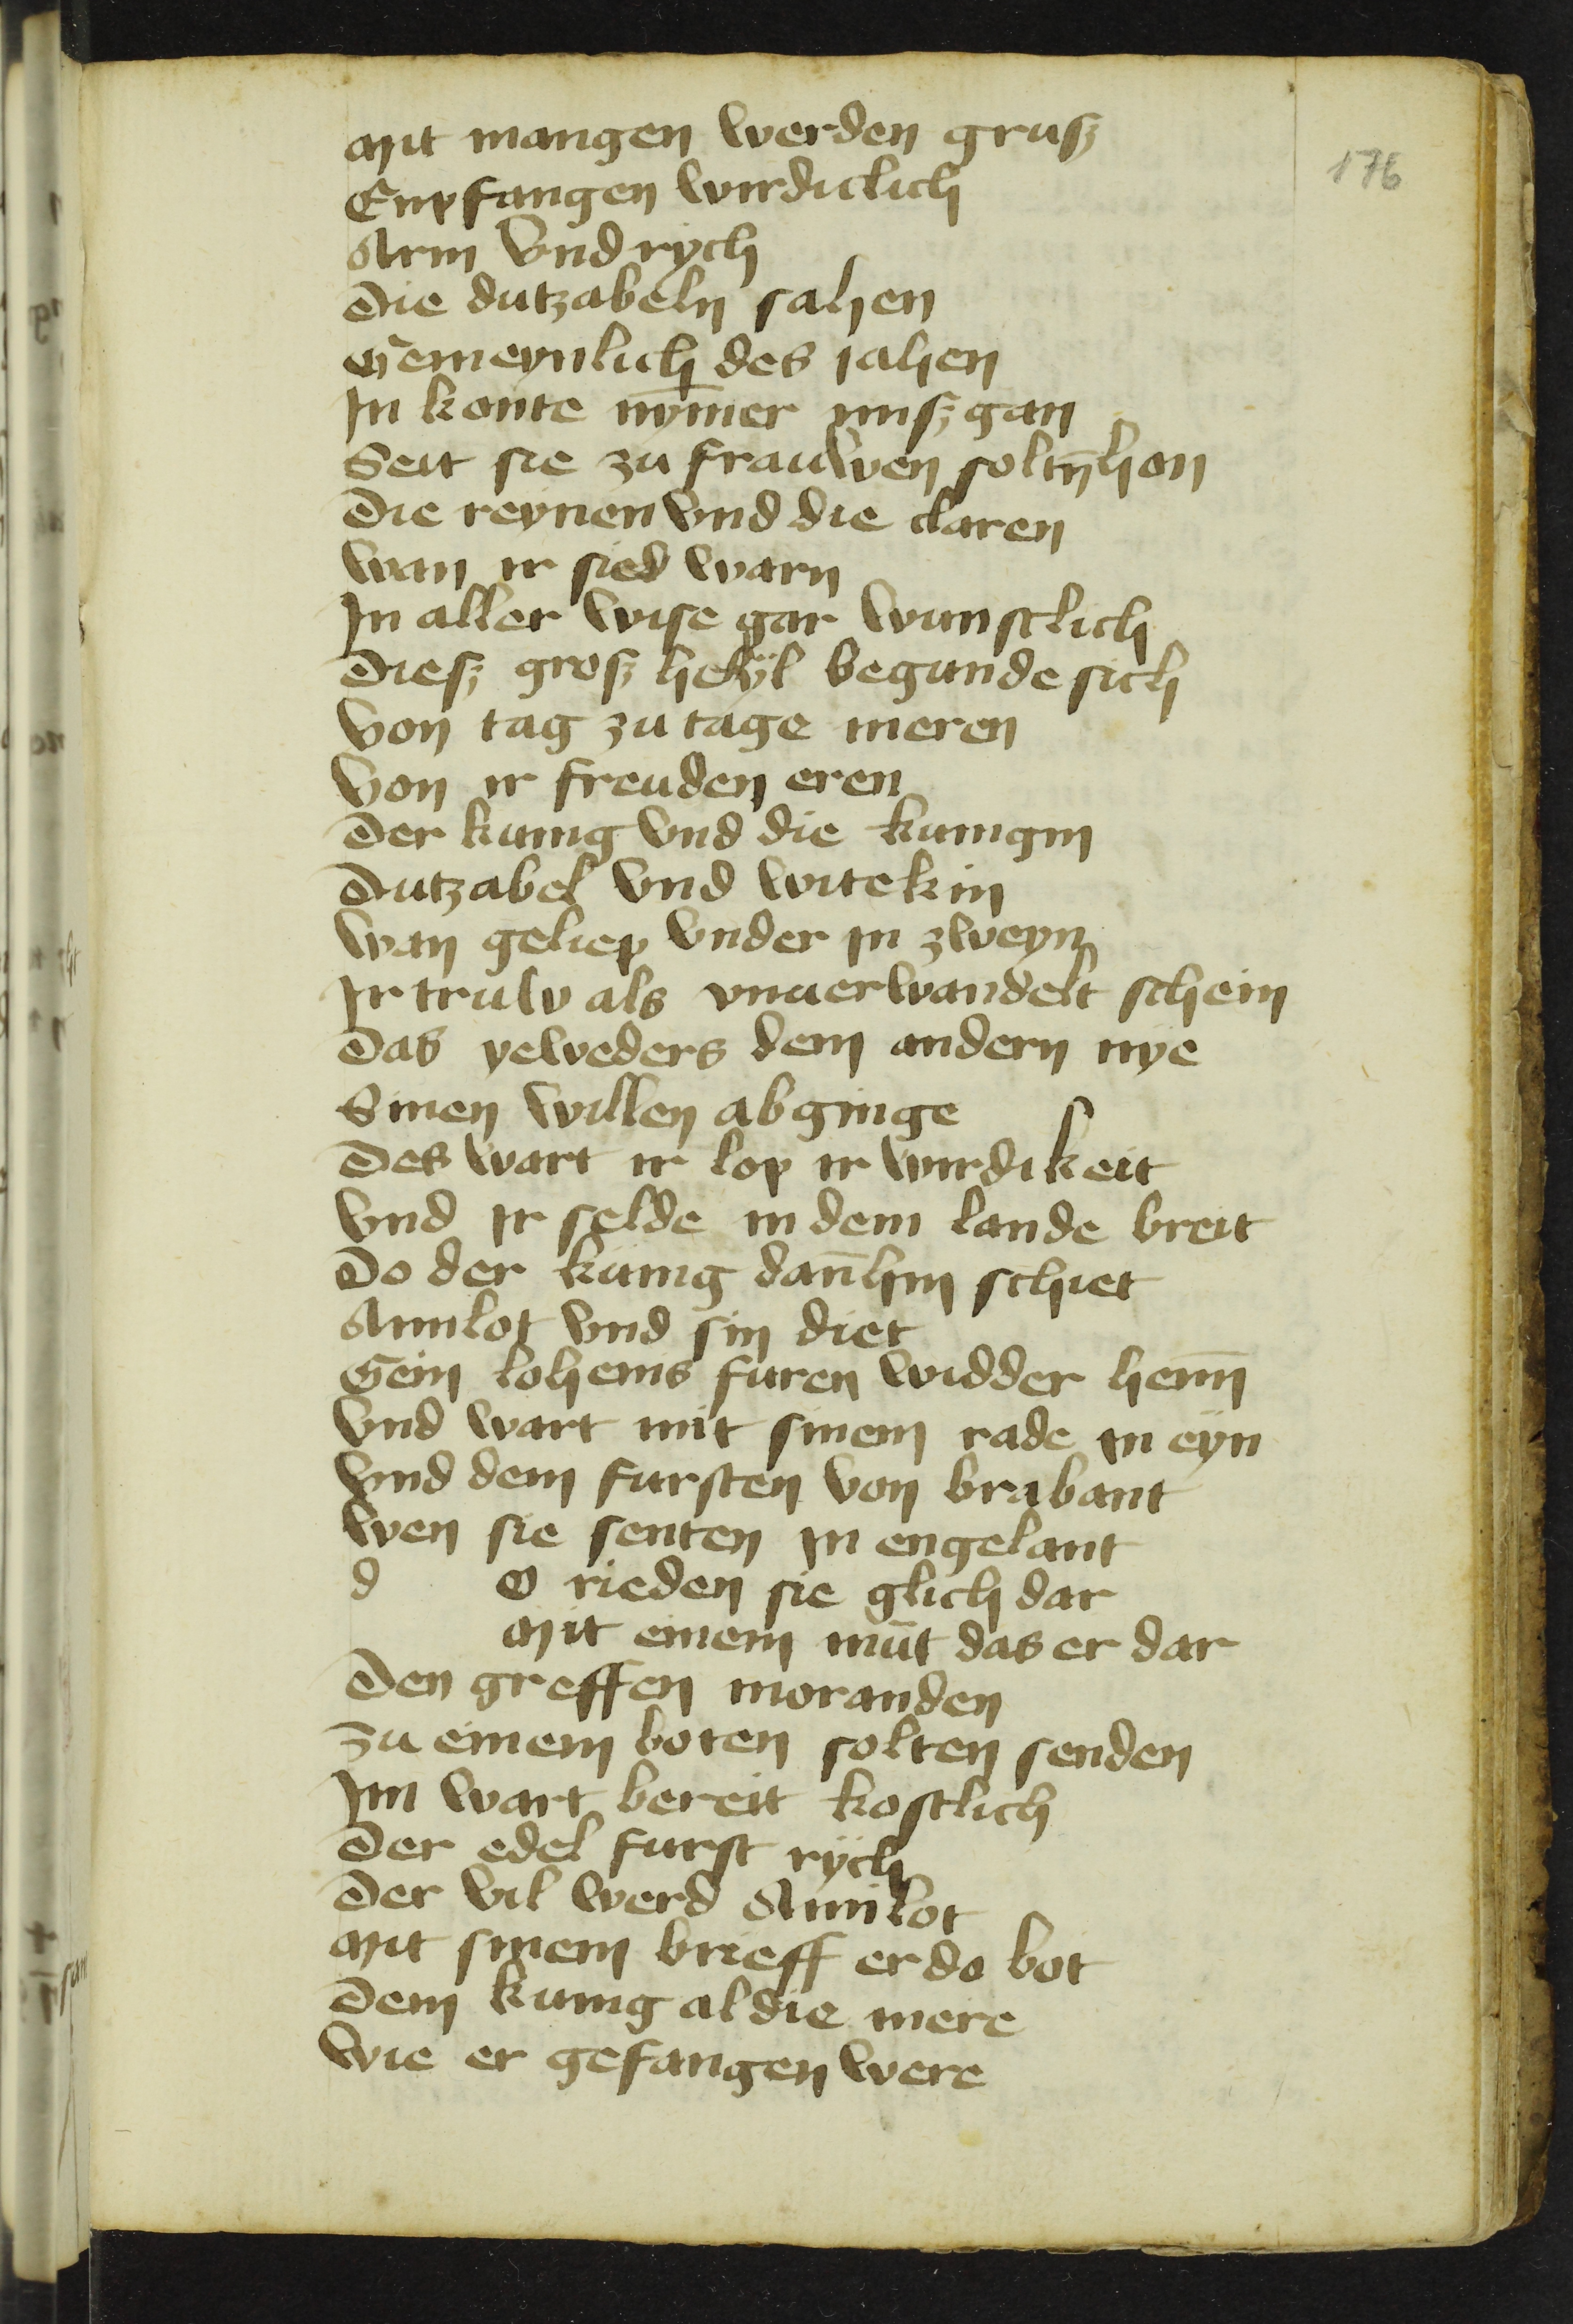 176
Mit mangen werden grusz
Enpfangen wirdiclich
Arm vnd rÿch
Die dutzabeln sahen
Gemeynlich des iahen
In konte nȳmer misz gan
Seit sie zu frauwen soltn̄ hon
Die reynen vnd die claren
Wan ir sied warn
In aller wise gar wunsclich
Diesz grosz heÿl begunde sich
Von tag zu tage meren
Von ir freuden eren
Der kunig vnd die kunigin
Dutzabel vnd witekin
Wan geliep vnder in zweyn
Ir truw als vnuerwandelt schein
Das yeweders dem andern nye
Sinen willen abginge
Des wart ir lop ir wirdikeit
Vnd ir selde in dem lande breit
Do der kunig dan̄ hin schiet
Amilot vnd sin diet
Gein loheins furen widder hein̄
Vnd wart mit sinem rade in eÿn
Vnd dem fursten von brabant
Wen sie senten in engelant
d o rieden sie glich dar
Mit einem mut das er dar
Den greffen moranden
Zu einem boten solten senden
Im wart bereit kostlich
Der edel furst rÿch
Der vil werd Amilot
Mit sinem brieff er do bot
Dem kunig al die mere
Wie er gefangen were